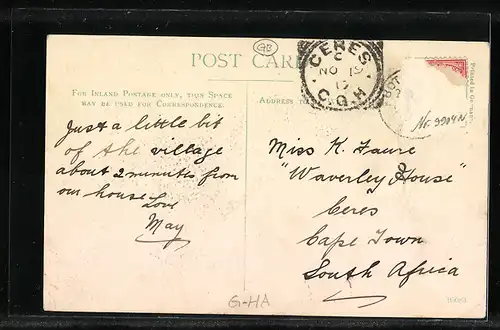 GB
POST CARD
FOR INLAND POSTAGE ONLY, THIS SPACE
MAY BE USED FOR CORRESPONDENCE.
Just a little bit
of the village
about 2 minutes from
our house
Love
May
ADDRESS
CERES
NO 19
C.G.H
Printed in Germany
Nr. 9904N
Miss K. Faure
"Waverley House"
Ceres
Cape Town
South Africa
G-HA